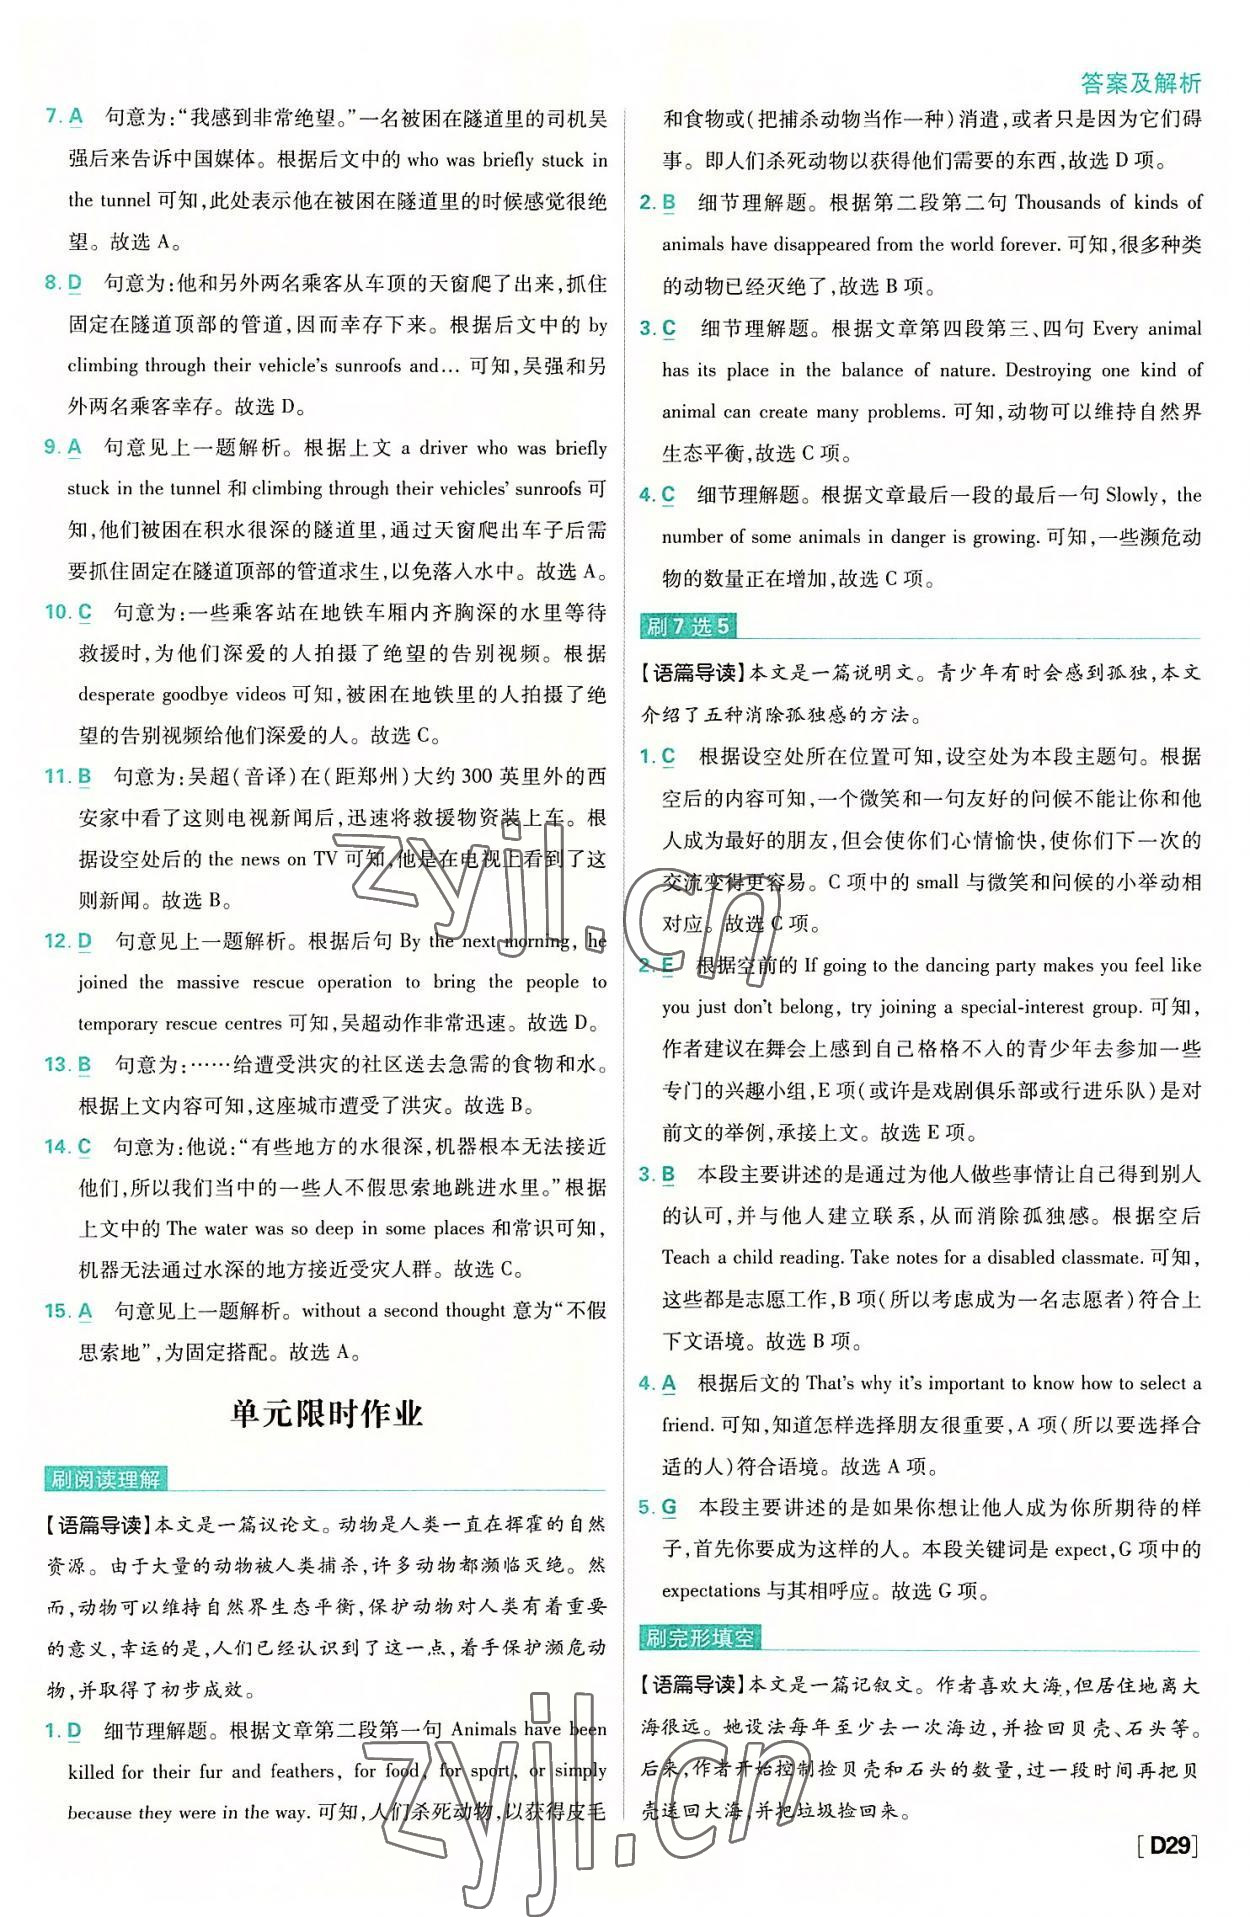 答案及解析
7. A 句意为:“我感到非常绝望。”一名被困在隧道里的司机吴
强后来告诉中国媒体。根据后文中的 who was briefly stuck in
the tunnel 可知,此处表示他在被困在隧道里的时候感觉很绝
望。故选 A。
8. D 句意为:他和另外两名乘客从车顶的天窗爬了出来,抓住
固定在隧道顶部的管道,因而幸存下来。根据后文中的 by
climbing through their vehicle's sunroofs and… 可知,吴强和另
外两名乘客幸存。故选 D。
9. A 句意见上一题解析。根据上文 a driver who was briefly
stuck in the tunnel 和 climbing through their vehicles' sunroofs 可
知,他们被困在积水很深的隧道里,通过天窗爬出车子后需
要抓住固定在隧道顶部的管道求生,以免落入水中。故选 A。
10. C 句意为:一些乘客站在地铁车厢内齐胸深的水里等待
救援时,为他们深爱的人拍摄了绝望的告别视频。根据
desperate goodbye videos 可知,被困在地铁里的人拍摄了绝
望的告别视频给他们深爱的人。故选 C。
11. B 句意为:吴超(音译)在(距郑州)大约 300 英里外的西
安家中看了这则电视新闻后,迅速将救援物资装上车。根
据设空处后的 the news on TV 可知,他是在电视上看到了这
则新闻。故选 B。
12. D 句意见上一题解析。根据后句 By the next morning, he
joined the massive rescue operation to bring the people to
temporary rescue centres 可知,吴超动作非常迅速。故选 D。
13. B 句意为:……给遭受洪灾的社区送去急需的食物和水。
根据上文内容可知,这座城市遭受了洪灾。故选 B。
14. C 句意为:他说:“有些地方的水很深,机器根本无法接近
他们,所以我们当中的一些人不假思索地跳进水里。”根据
上文中的 The water was so deep in some places 和常识可知,
机器无法通过水深的地方接近受灾人群。故选 C。
15. A 句意见上一题解析。without a second thought 意为“不假
思索地”,为固定搭配。故选 A。
单元限时作业
刷阅读理解
【语篇导读】本文是一篇议论文。动物是人类一直在挥霍的自然
资源。由于大量的动物被人类捕杀,许多动物都濒临灭绝。然
而,动物可以维持自然界生态平衡,保护动物对人类有着重要
的意义,幸运的是,人们已经认识到了这一点,着手保护濒危动
物,并取得了初步成效。
1. D 细节理解题。根据文章第二段第一句 Animals have been
killed for their fur and feathers, for food, for sport, or simply
because they were in the way. 可知,人们杀死动物,以获得皮毛
和食物或(把捕杀动物当作一种)消遣,或者只是因为它们碍
事。即人们杀死动物以获得他们需要的东西,故选 D 项。
2. B 细节理解题。根据第二段第二句 Thousands of kinds of
animals have disappeared from the world forever. 可知,很多种类
的动物已经灭绝了,故选 B 项。
3. C 细节理解题。根据文章第四段第三、四句 Every animal
has its place in the balance of nature. Destroying one kind of
animal can create many problems. 可知,动物可以维持自然界
生态平衡,故选 C 项。
4. C 细节理解题。根据文章最后一段的最后一句 Slowly, the
number of some animals in danger is growing. 可知,一些濒危动
物的数量正在增加,故选 C 项。
刷 7 选 5
【语篇导读】本文是一篇说明文。青少年有时会感到孤独,本文
介绍了五种消除孤独感的方法。
1. C 根据设空处所在位置可知,设空处为本段主题句。根据
空后的内容可知,一个微笑和一句友好的问候不能让你和他
人成为最好的朋友,但会使你们心情愉快,使你们下一次的
交流变得更容易。C 项中的 small 与微笑和问候的小举动相
对应。故选 C 项。
2. E 根据空前的 If going to the dancing party makes you feel like
you just don't belong, try joining a special-interest group. 可知,
作者建议在舞会上感到自己格格不入的青少年去参加一些
专门的兴趣小组,E 项(或许是戏剧俱乐部或行进乐队)是对
前文的举例,承接上文。故选 E 项。
3. B 本段主要讲述的是通过为他人做些事情让自己得到别人
的认可,并与他人建立联系,从而消除孤独感。根据空后
Teach a child reading. Take notes for a disabled classmate. 可知,
这些都是志愿工作,B 项(所以考虑成为一名志愿者)符合上
下文语境。故选 B 项。
4. A 根据后文的 That's why it's important to know how to select a
friend. 可知,知道怎样选择朋友很重要,A 项(所以要选择合
适的人)符合语境。故选 A 项。
5. G 本段主要讲述的是如果你想让他人成为你所期待的样
子,首先你要成为这样的人。本段关键词是 expect,G 项中的
expectations 与其相呼应。故选 G 项。
刷完形填空
【语篇导读】本文是一篇记叙文。作者喜欢大海,但居住地离大
海很远。她设法每年至少去一次海边,并捡回贝壳、石头等。
后来,作者开始控制捡贝壳和石头的数量,过一段时间再把贝
壳送回大海,并把垃圾捡回来。
[D29]
zyjl.cn
zyjl.cn